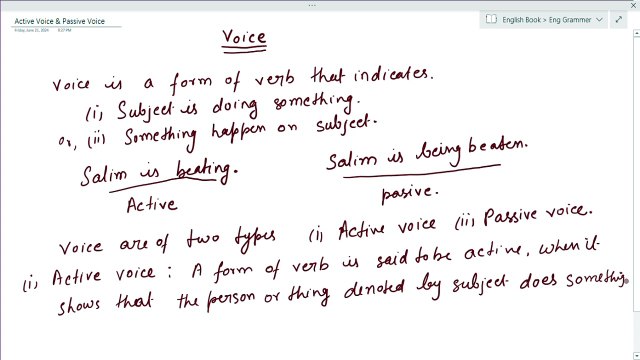 Active Voice & Passive Voice
Friday, June 21, 2024 8:27 PM
English Book > Eng Grammer
Voice
Voice is a form of verb that indicates.
(i) Subject is doing something.
or, (ii) Something happen on subject.
Salim is beating. Salim is being beaten.
Active pasive.
Voice are of two types (i) Active voice (ii) Passive voice.
(i) Active voice : A form of verb is said to be active, when it
shows that the person or thing denoted by subject does somethig